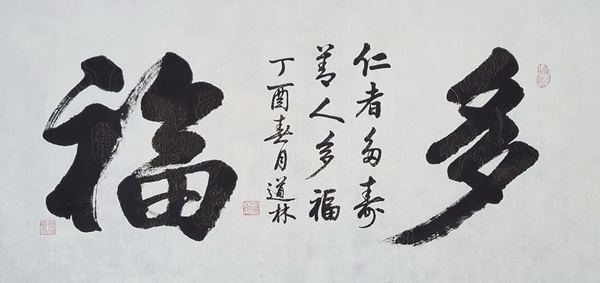 多
仁者多壽
善人多福
丁酉春月道林
福